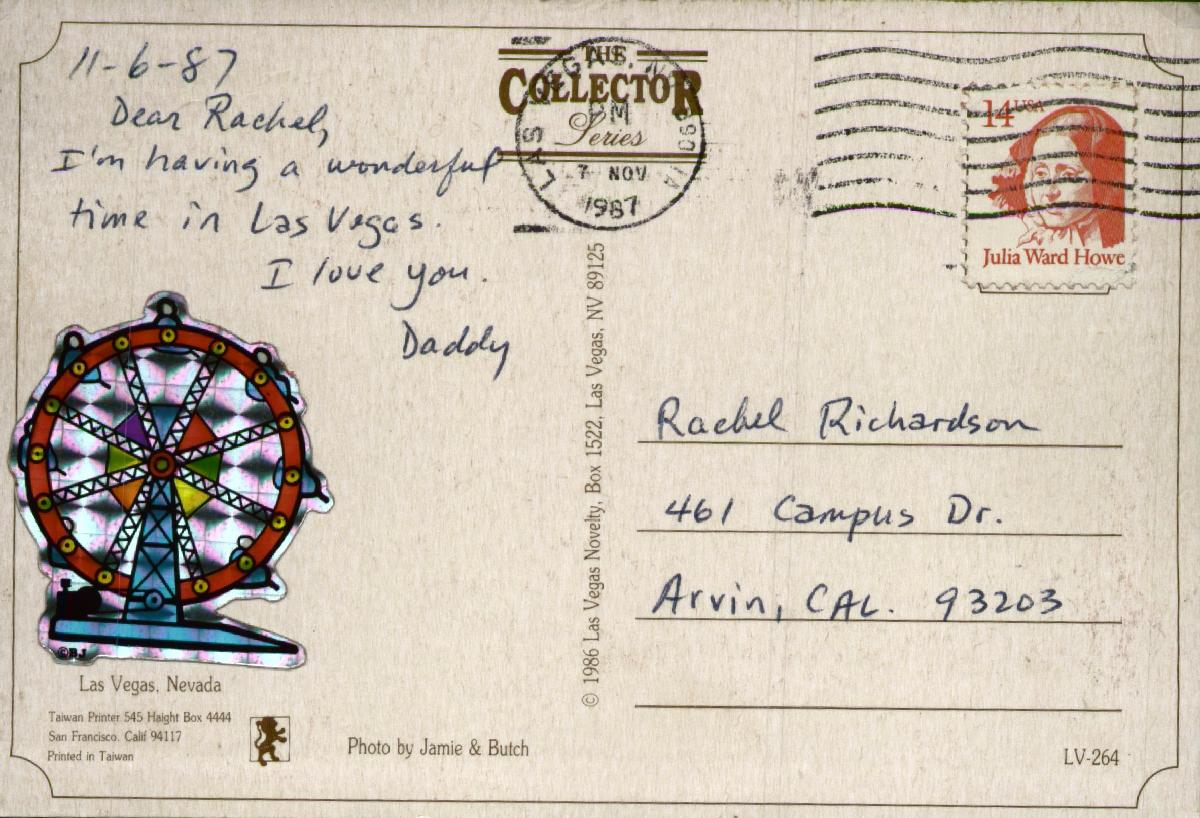 11-6-87
Dear Rachel,
I'm having a wonderful
time in Las Vegas.
I love you.
Daddy
THE
COLLECTOR
Series
LAS VEGAS, NV
PM
7 NOV
1987
14 USA
Julia Ward Howe
© 1986 Las Vegas Novelty, Box 1522, Las Vegas, NV 89125
Rachel Richardson
461 Campus Dr.
Arvin, CAL. 93203
©BJ
Las Vegas, Nevada
Taiwan Printer 545 Haight Box 4444
San Francisco. Calif 94117
Printed in Taiwan
Photo by Jamie & Butch
LV-264